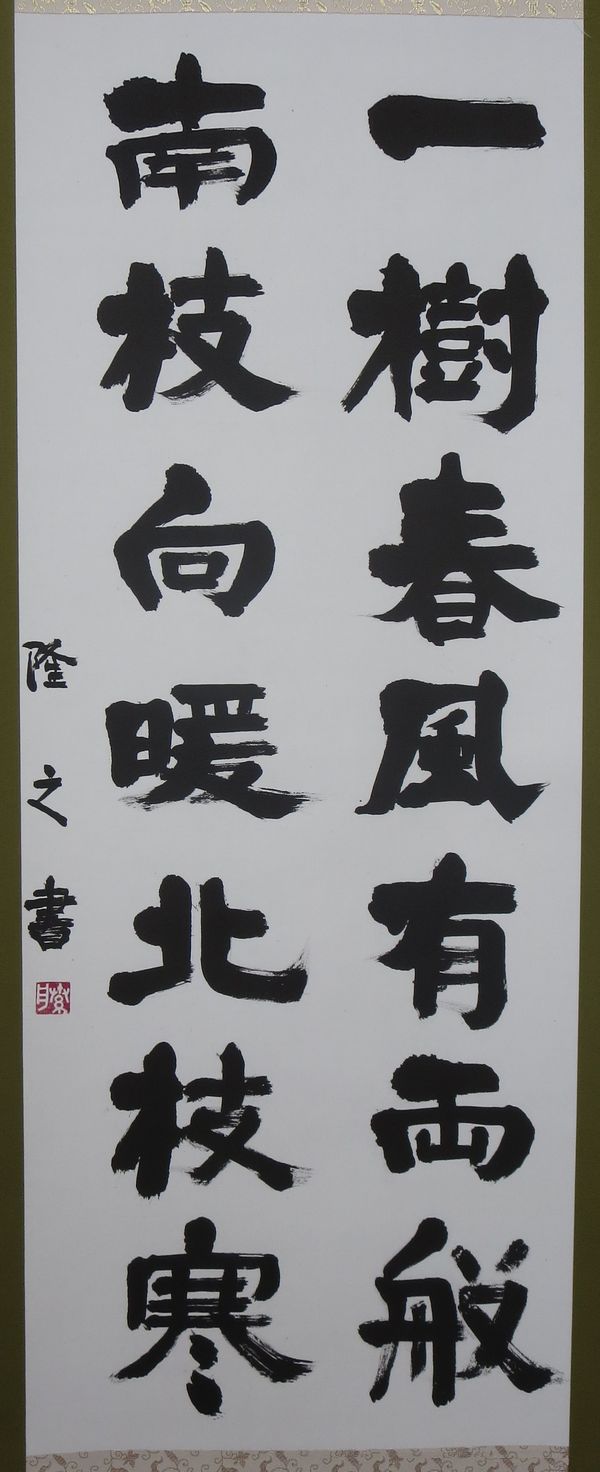 一樹春風有両般
南枝向暖北枝寒
隆之書